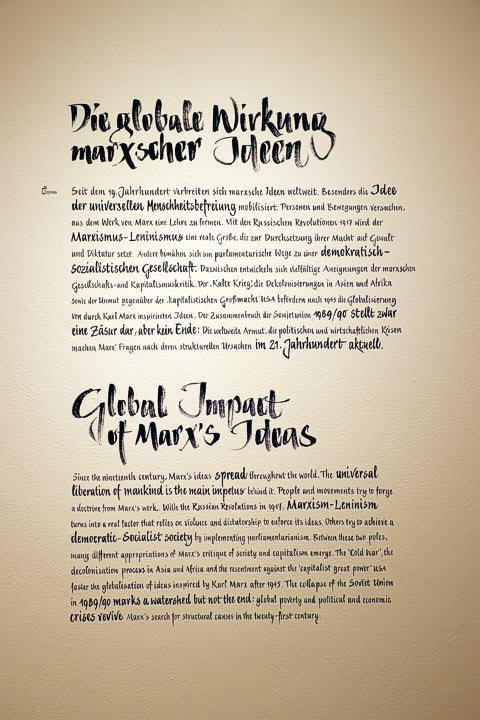 Die globale Wirkung
marxscher Ideen
Seit dem 19. Jahrhundert verbreiten sich marxsche Ideen weltweit. Besonders die Idee
der universellen Menschheitsbefreiung mobilisiert. Personen und Bewegungen versuchen,
aus dem Werk von Marx eine Lehre zu formen. Mit den Russischen Revolutionen 1917 wird der
Marxismus-Leninismus eine reale Größe, die zur Durchsetzung ihrer Macht auf Gewalt
und Diktatur setzt. Andere bemühen sich um parlamentarische Wege zu einer demokratisch-
sozialistischen Gesellschaft. Dazwischen entwickeln sich vielfältige Aneignungen der marxschen
Gesellschafts- und Kapitalismuskritik. Der ‚Kalte Krieg‘, die Dekolonisierungen in Asien und Afrika
sowie der Unmut gegenüber der ‚kapitalistischen Großmacht‘ USA befördern nach 1945 die Globalisierung
von durch Karl Marx inspirierten Ideen. Der Zusammenbruch der Sowjetunion 1989/90 stellt zwar
eine Zäsur dar, aber kein Ende: Die weltweite Armut, die politischen und wirtschaftlichen Krisen
machen Marx' Fragen nach deren strukturellen Ursachen im 21. Jahrhundert aktuell.
Global Impact
of Marx's Ideas
Since the nineteenth century, Marx's ideas spread throughout the world. The universal
liberation of mankind is the main impetus behind it. People and movements try to forge
a doctrine from Marx's work. With the Russian Revolutions in 1917, Marxism-Leninism
turns into a real factor that relies on violence and dictatorship to enforce its ideas. Others try to achieve a
democratic-Socialist society by implementing parliamentarianism. Between these two poles,
many different appropriations of Marx's critique of society and capitalism emerge. The 'Cold War', the
decolonisation process in Asia and Africa and the resentment against the 'capitalist great power' USA
foster the globalisation of ideas inspired by Karl Marx after 1945. The collapse of the Soviet Union
in 1989/90 marks a watershed but not the end: global poverty and political and economic
crises revive Marx's search for structural causes in the twenty-first century.